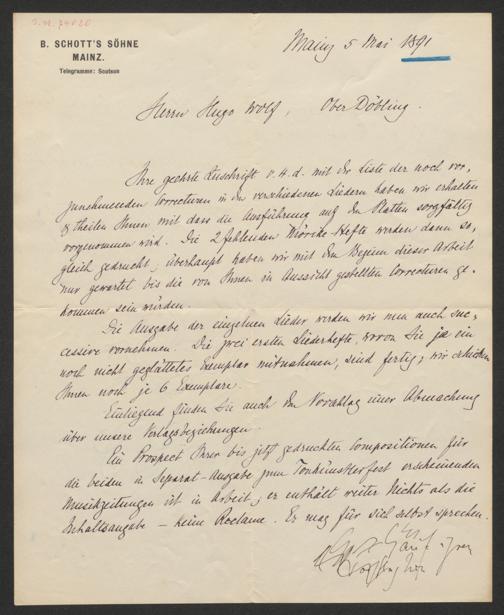 B. SCHOTT'S SÖHNE
MAINZ.
Telegramme: Scutson
Mainz 5 Mai 1891
Herrn Hugo Wolf, Ober Döbling.
Ihre geehrte Zuschrift v. 4. d. mit der Liste der noch vor,
zunehmenden Correcturen in den verschiedenen Liedern haben wir erhalten
& theilen Ihnen mit dass die Ausführung auf den Platten sorgfältig
vorgenommen wird. Die 2 fehlenden Mörike-Hefte werden dann so,
gleich gedruckt, überhaupt haben wir mit dem Beginn dieser Arbeit
nur gewartet bis die von Ihnen in Aussicht gestellten Correcturen ge,
kommen sein würden.
Die Ausgabe der einzelnen Lieder werden wir nun auch suc,
cessive vornehmen. Die zwei ersten Liederhefte, wovon Sie ja ein
noch nicht geglättetes Exemplar mitnahmen, sind fertig; wir schicken
Ihnen noch je 6 Exemplare.
Einliegend finden Sie auch den Vorschlag einer Abmachung
über unsere Verlagsbeziehungen.
Ein Prospect Ihrer bis jetzt gedruckten Compositionen für
die beiden in Separat-Ausgabe zum Tonkünstlerfest erscheinenden
Musikzeitungen ist in Arbeit; er enthält weiter Nichts als die
Inhaltsangabe – keine Reclame. Er mag für sich selbst sprechen.